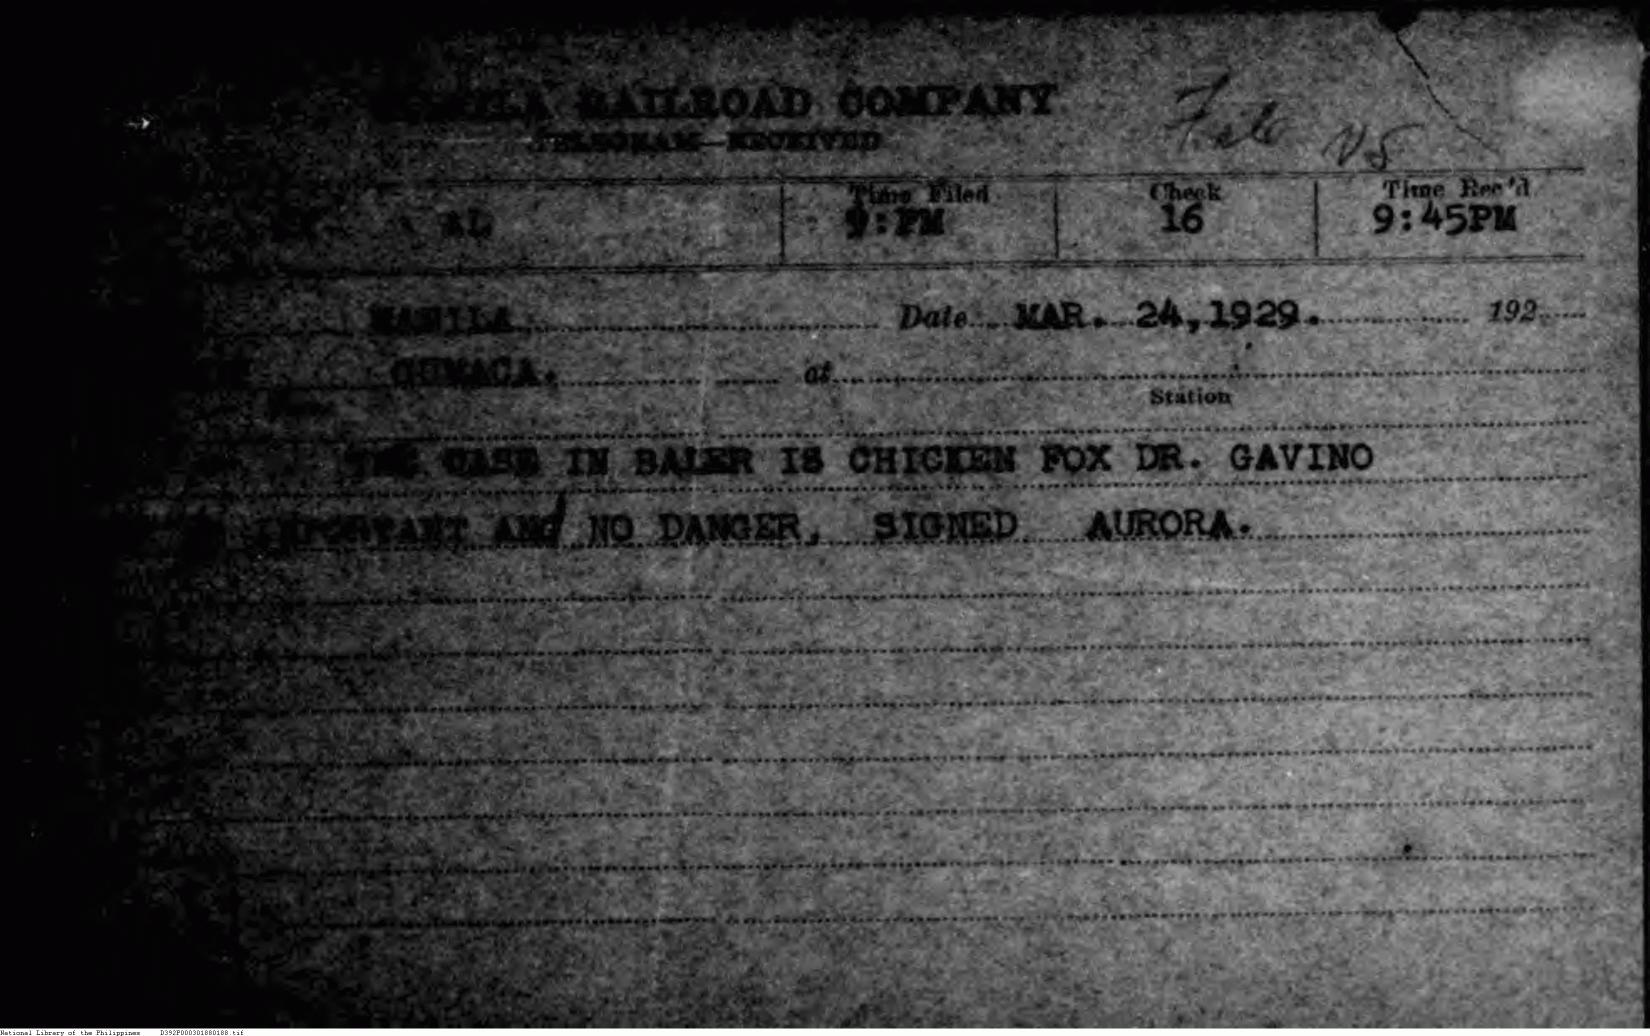 MANILA RAILROAD COMPANY
TELEGRAM—RECEIVED
File
Time Filed Check Time Rec'd
AL 9:PM 16 9:45PM
MANILA Date MAR. 24,1929. 192
GUMACA. at
Station
THE CASE IN BALER IS CHICKEN FOX DR. GAVINO
IMPORTANT AND NO DANGER, SIGNED AURORA.
National Library of the Philippines D392P000301880188.tif